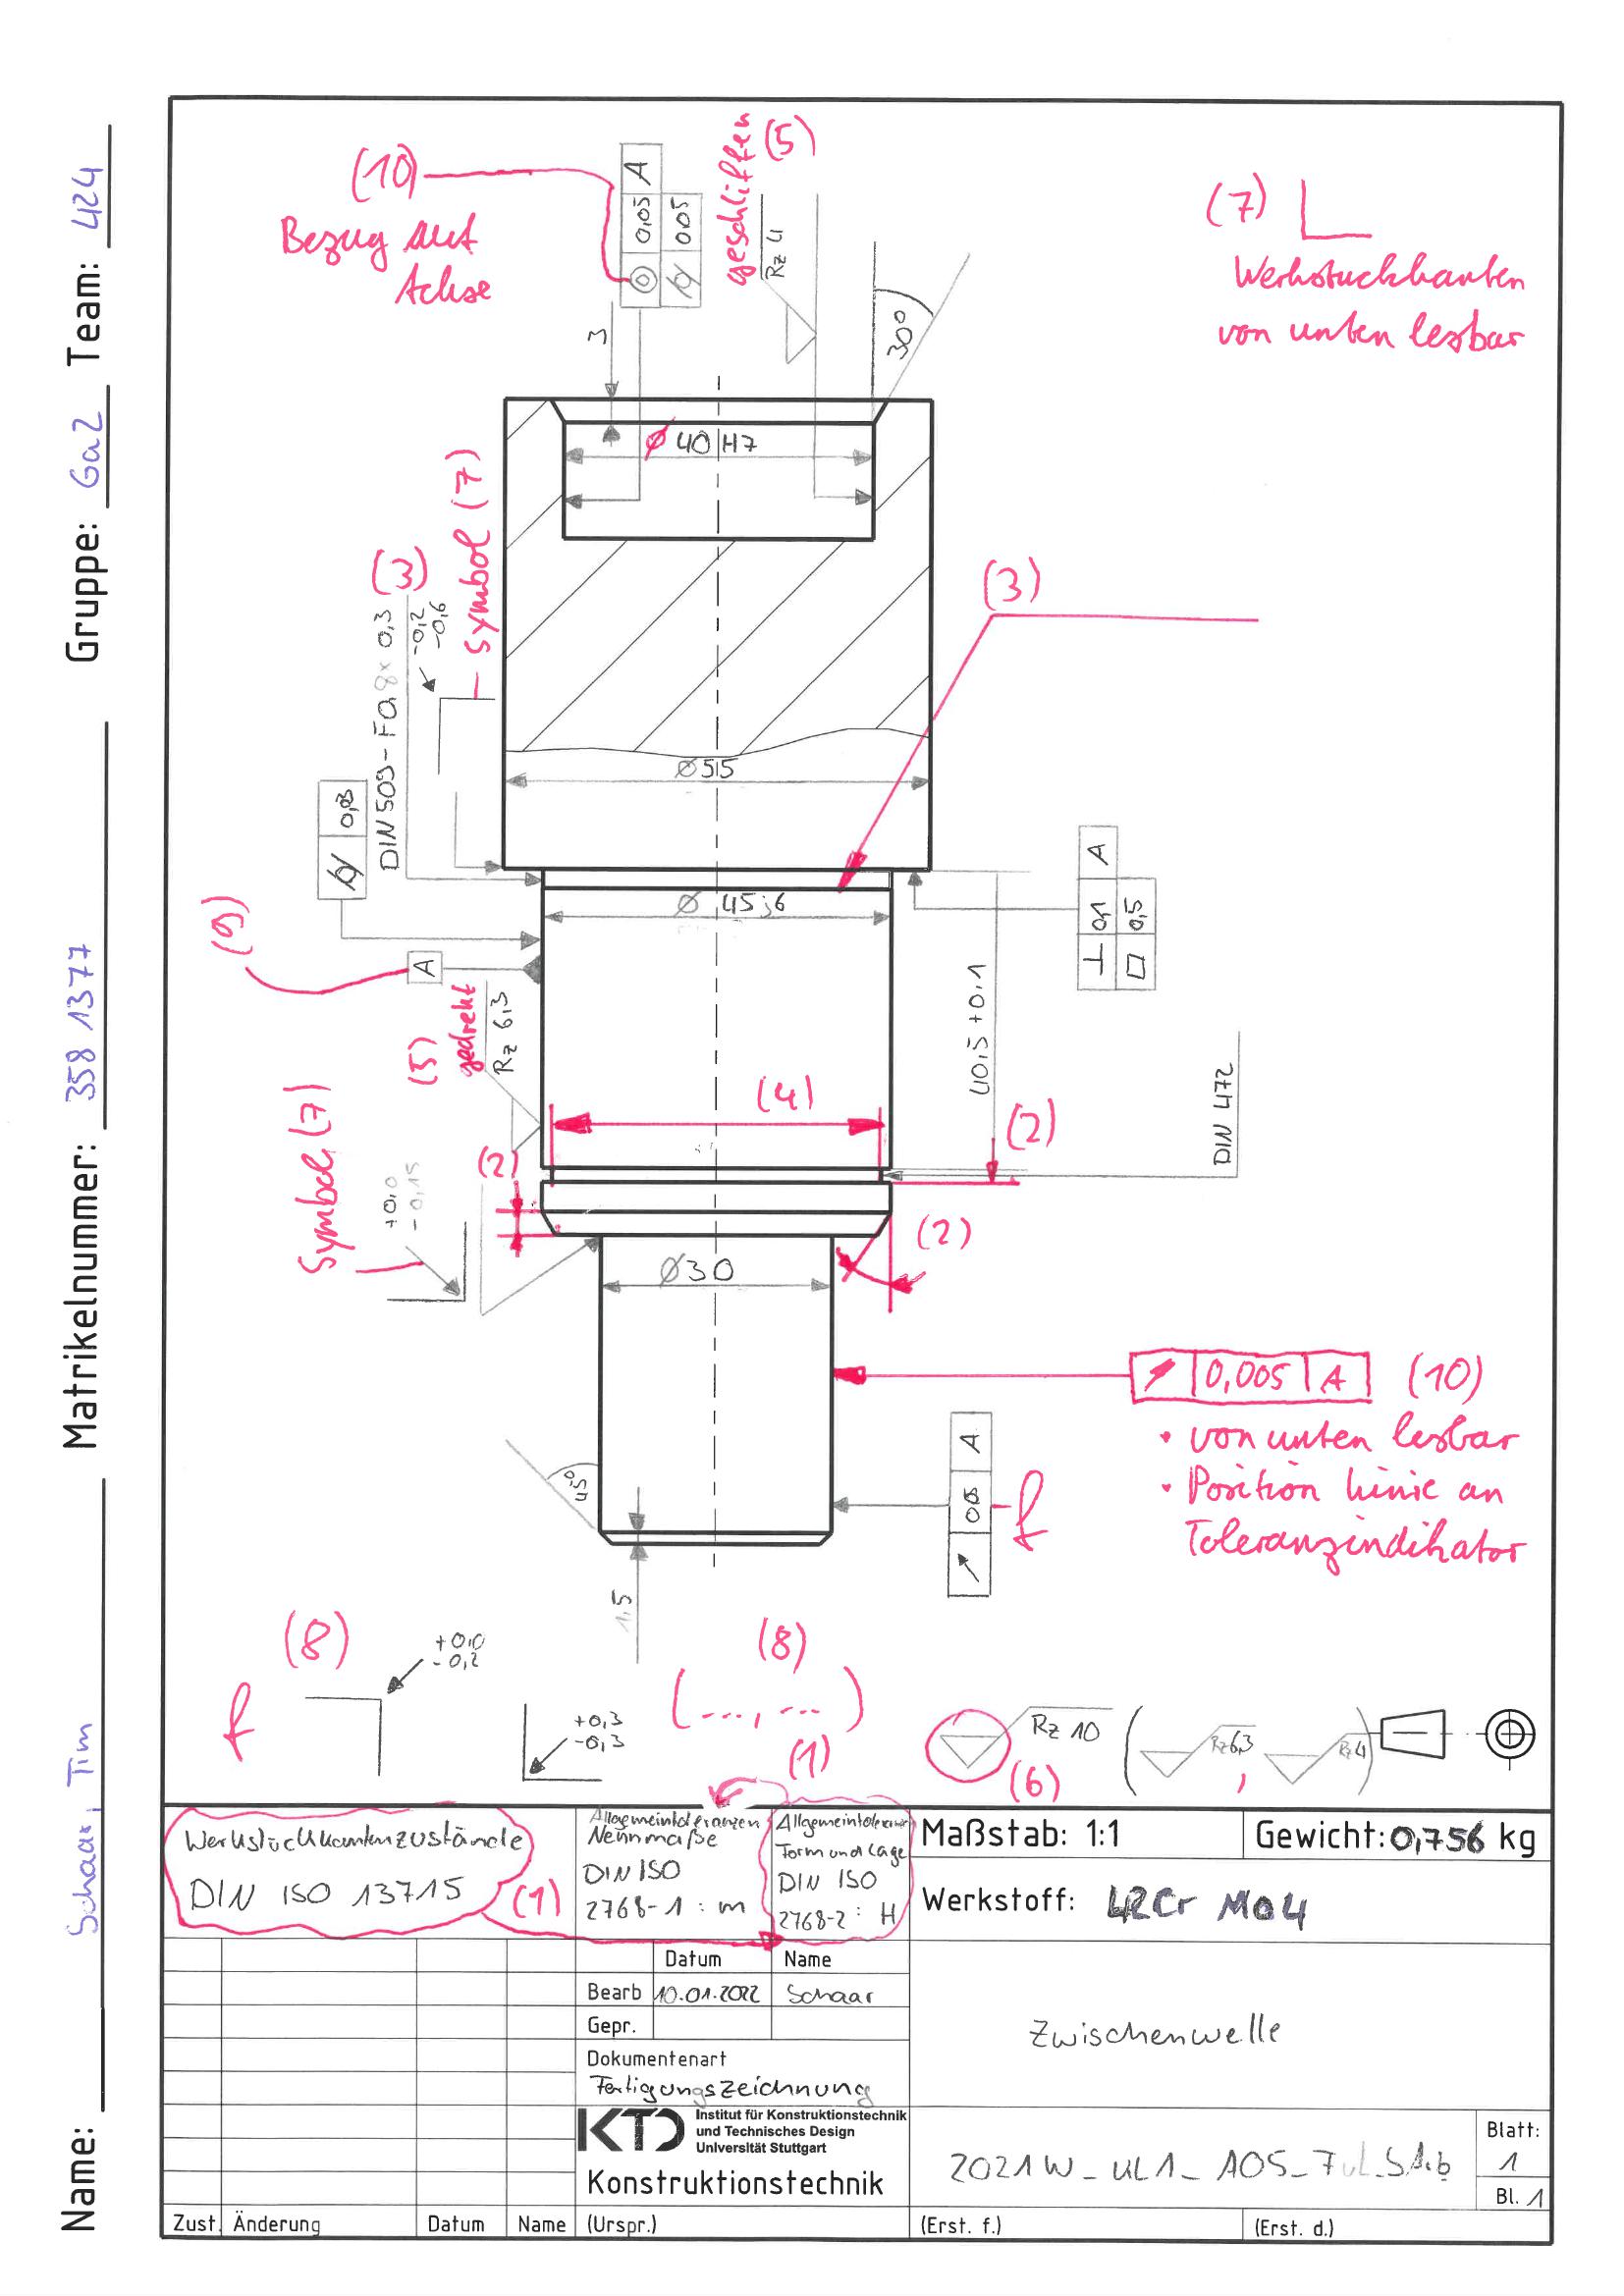 Name: Schaar, Tim
Matrikelnummer: 358 1377
Gruppe: Ga2 Team: 424
(10)
Bezug auf
Achse
◎ 0,05 A
⌭ 0,05
geschliffen (5)
Rz 4
30°
3
(7)
Werkstückkanten
von unten lesbar
Ø 40 H7
Symbol (7)
(3)
DIN 509 - F0,8 x 0,3
-0,2
-0,6
(3)
Ø55
⌭ 0,03
Ø 45j6
⊥ 0,1 A
⏥ 0,5
(9)
A
(5)
gedreht
Rz 6,3
40,5 +0,1
(4)
(2)
DIN 472
Symbol (7)
+0,0
-0,15
(2)
(2)
Ø30
0,005 A (10)
• von unten lesbar
• Position Linie an
Toleranzindikator
↗ 0,05 A
f
45°
1,5
(8)
f
+0,0
-0,2
+0,3
-0,3
(8)
(...,...)
(1)
Rz 10 ( Rz 6,3 , Rz 4 )
(6)
Werkstückkantenzustände
DIN ISO 13715 (1)
Allgemeintoleranzen
Nennmaße
DIN ISO
2768-1 : m
Form und Lage
DIN ISO
2768-2 : H
Maßstab: 1:1
Gewicht: 0,756 kg
Werkstoff: 42Cr Mo4
Datum Name
Bearb 10.01.2022 Schaar
Gepr.
Dokumentenart
Fertigungszeichnung
Zwischenwelle
KTD Institut für Konstruktionstechnik
und Technisches Design
Universität Stuttgart
Konstruktionstechnik
Blatt:
1
Bl. 1
Zust. Änderung Datum Name (Urspr.) (Erst. f.) (Erst. d.)